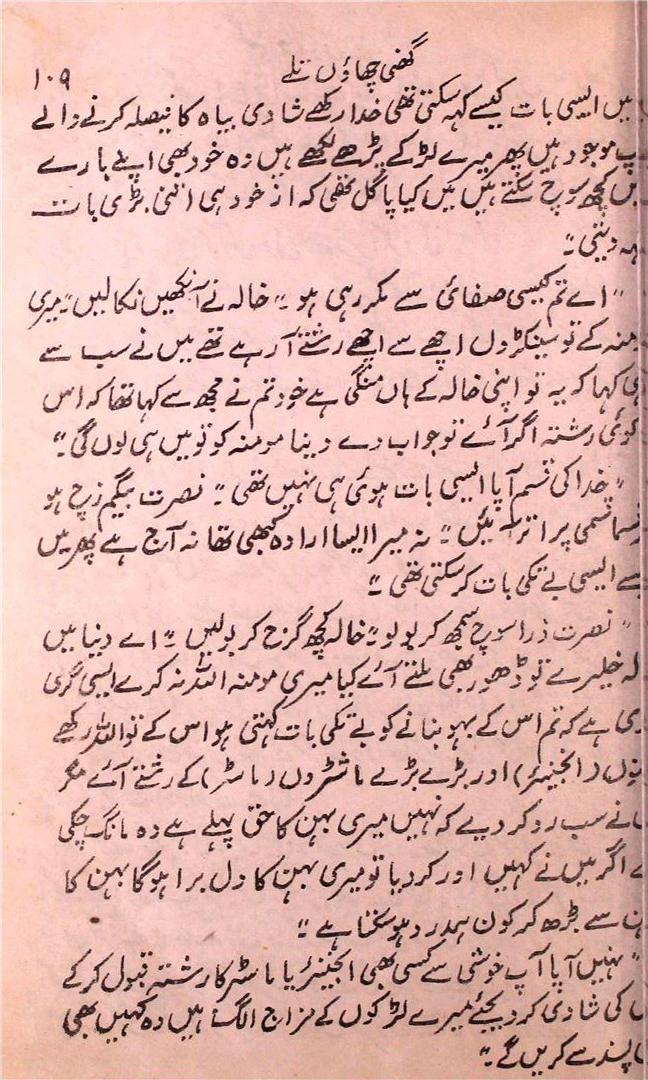 گھنی چھاؤں تلے
۱۰۹
میں ایسی بات کیسے کہہ سکتی تھی خدا رکھے شادی بیاہ کا فیصلہ کرنے والے
موجود ہیں پھر میرے لڑکے پڑھے لکھے ہیں وہ خود بھی اپنے بارے
کچھ سوچ سکتے ہیں میں کیا پاگل تھی کہ از خود ہی اتنی بڑی بات
دیتی ۔"
" اے تم کیسی صفائی سے مکر رہی ہو ۔" خالہ نے آنکھیں نکالیں ۔" میری
کے تو سینکڑوں اچھے سے اچھے رشتے آ رہے تھے میں نے سب سے
کہا کہ یہ تو اپنی خالہ کے ہاں منگی ہے خود تم نے مجھ سے کہا تھا کہ اس
کوئی رشتہ اگر آئے تو جواب دے دینا مومنہ کو تو میں ہی لوں گی ۔"
" خدا کی قسم آپا ایسی بات ہوئی ہی نہیں تھی ۔" نصرت بیگم زچ ہو
قسما قسمی پر اتر آئیں ۔" نہ میرا ایسا ارادہ کبھی تھا نہ آج ہے پھر میں
ایسی بے تکی بات کر سکتی تھی ۔"
" نصرت ذرا سوچ سمجھ کر بولو ۔" خالہ کچھ گرج کر بولیں ۔" اے دنیا میں
خلیرے تو ڈھور بھی ملتے آئے کیا میری مومنہ اللہ نہ کرے ایسی گری
ہے کہ تم اس کے بہو بنانے کو بے تکی بات کہتی ہو اس کے تو اللہ رکھے
(انجینئر) اور بڑے بڑے ماشٹروں (ماسٹر) کے رشتے آئے مگر
نے سب رد کر دیے کہ نہیں میری بہن کا حق پہلے ہے وہ مانگ چکی
اگر میں نے کہیں اور کر دیا تو میری بہن کا دل برا ہوگا بہن کا
سے بڑھ کر کون ہمدرد ہو سکتا ہے ۔"
" نہیں آپا آپ خوشی سے کسی بھی انجینئر یا ماسٹر کا رشتہ قبول کر کے
کی شادی کر دیجئے میرے لڑکوں کے مزاج الگ ہیں وہ کہیں بھی
پسند سے کریں گے ۔"